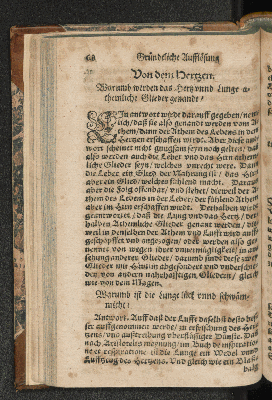 68 Gründtliche Aufflösung
Von dem Hertzen.
Warumb werden das Hertz vnnd Lunge a-
themliche Glieder genandt /
EIn antwort wirdt darauff gegeben / nem-
lich / daß sie also genandt werden vom A-
them / dann der Athem des Lebens in dem
Hertzen erschaffen wirdt. Aber diese ant-
wort scheinet nicht gnugsam seyn
also werden auch die Leber vnd das Hirn athem-
liche Glieder seyn / welches vnrecht were. Dann
die Leber ein Glied der Nahrung ist / das Hirn
aber ein Glied / welches fühlend macht. Darauff
aber die Folg offenbar / vnd stehet / dieweil der A-
them des Lebens in der Leber / der fühlend Athem
aber im Hirn erschaffen wirdt. Derhalben wirdt
geantwortet / daß die Lung vnd das Hertz / der-
halben Athemliche Glieder genant werden / die-
weil in denselben der Athem vnd Lufft wirdt auff-
geschöpffet vnd angezogen / oder werden also ge-
nennet von wegen jhrer vnvermüglichkeit
anderer Glieder / darumb sind diese zwey
Glieder mit Häutlin abgesondert vnd vnderschie-
den von andern nahrhafftigen Gliedern / gleich
wie von dem Magen.
Warumb ist die Lunge liecht vnnd schwäm-
micht /
Antwort. Auff daß der Lufft daselbst desto bes-
ser auffgenommen werde / zu erfrischung des Her-
tzens / vnd außtreibung vberflüssiger Dünste. Dann
nach Aristotelis meynung / im Buch de inspiratione
et respiratione ist die Lunge ein Wedel vnnd
Auffzug des Hertzens. Vnd gleich wie ein Blaß-
balg